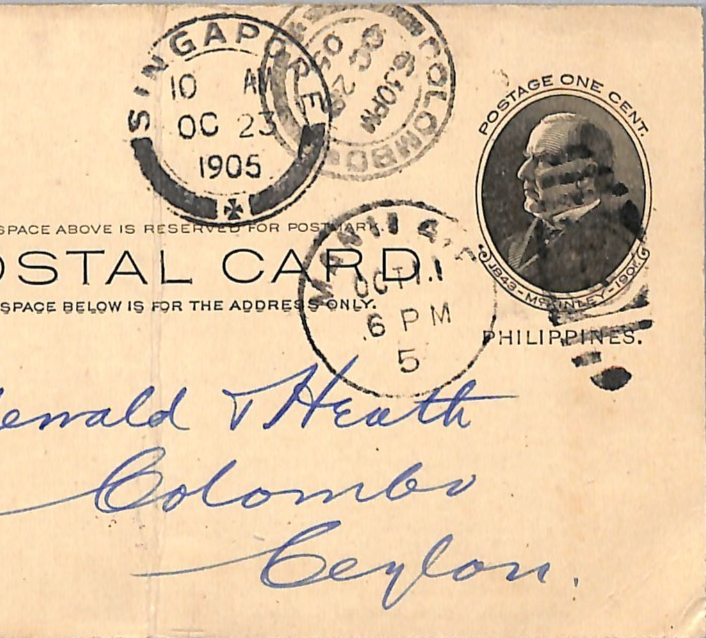 SINGAPORE
10 AM
OC 23
1905
COLOMBO
6.30PM
OC 29
05
POSTAGE ONE CENT.
1843 - McKINLEY - 1901
PHILIPPINES.
SPACE ABOVE IS RESERVED FOR POSTMARK.
OSTAL CARD.
SPACE BELOW IS FOR THE ADDRESS ONLY.
MANILA, P.I.
OCT 11
6 PM
5
ewald & Heath
Colombo
Ceylon.